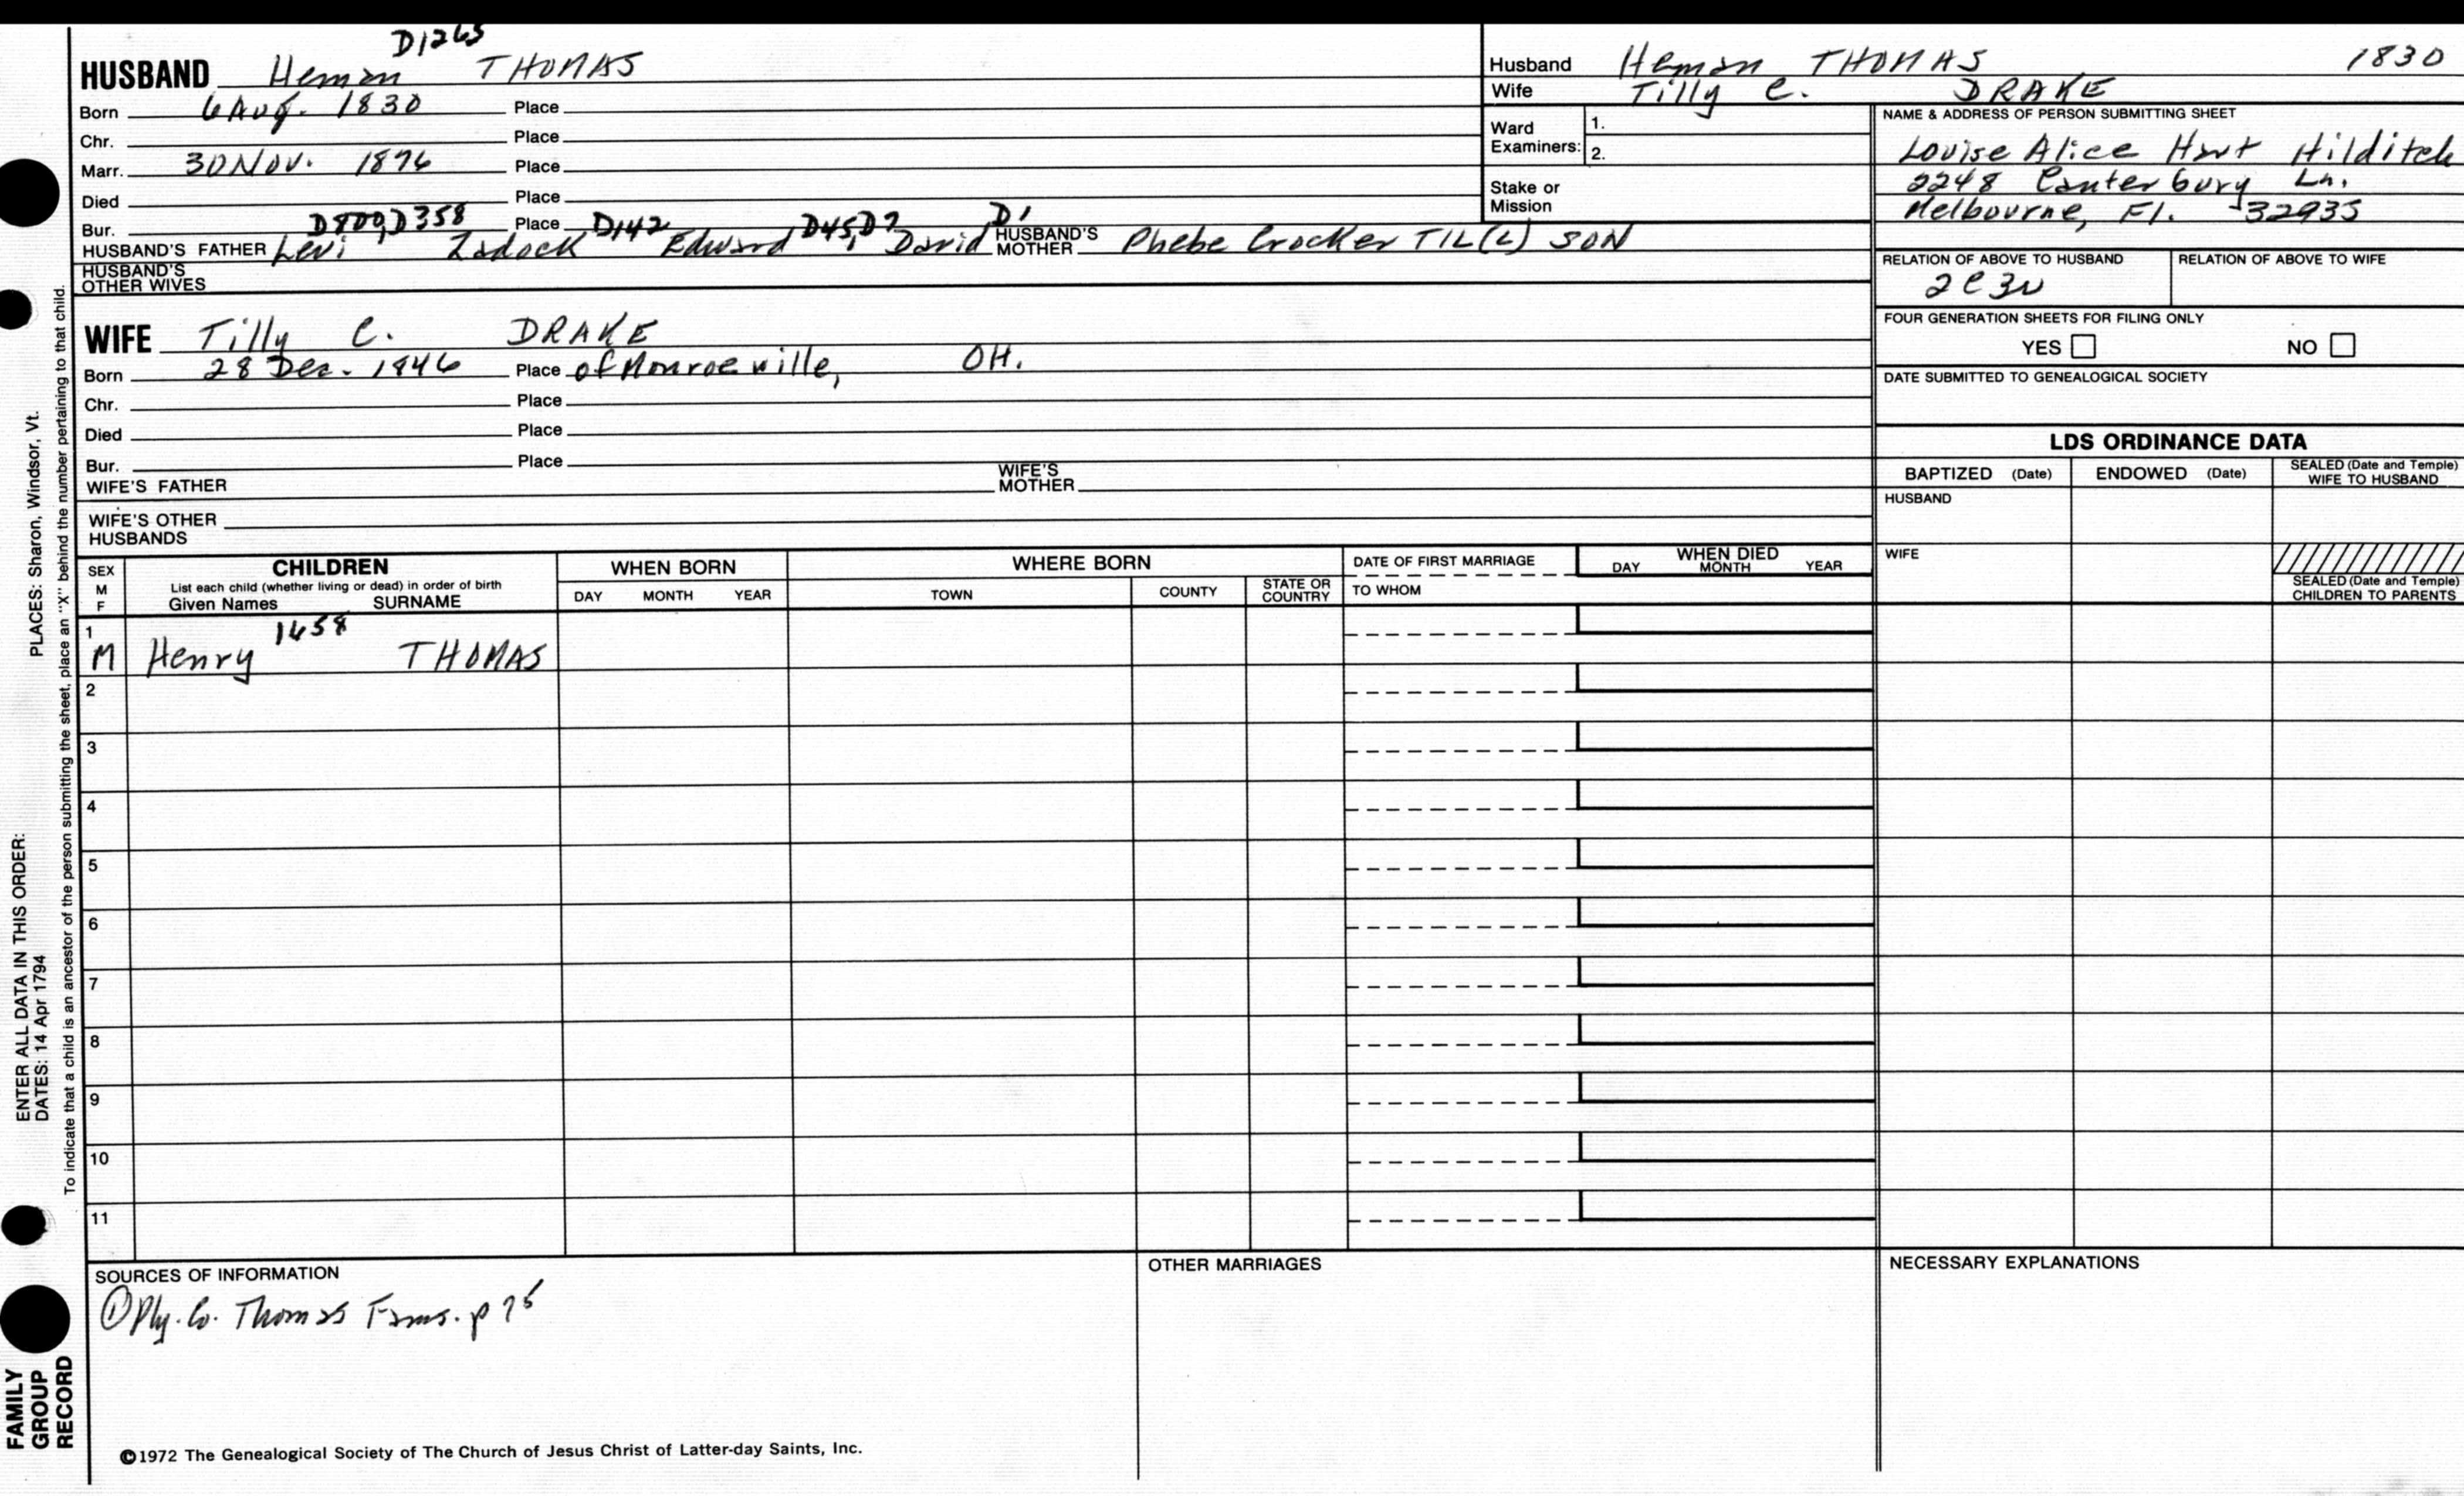 D1265
HUSBAND Heman THOMAS
Born 6 Aug. 1830 Place
Chr. Place
Marr. 30 Nov. 1876 Place
Died Place
Bur. Place
D800, D358 D142 D45, D? D1
HUSBAND'S FATHER Levi Zadock Edward David HUSBAND'S MOTHER Phebe Crocker TIL(L)SON
HUSBAND'S OTHER WIVES
WIFE Tilly C. DRAKE
Born 28 Dec. 1846 Place of Monroeville, OH.
Chr. Place
Died Place
Bur. Place
WIFE'S FATHER WIFE'S MOTHER
WIFE'S OTHER HUSBANDS
Husband Heman THOMAS 1830
Wife Tilly C. DRAKE
Ward Examiners: 1.
2.
Stake or Mission
NAME & ADDRESS OF PERSON SUBMITTING SHEET
Louise Alice Hart Hilditch
2248 Canterbury Ln.
Melbourne, Fl. 32935
RELATION OF ABOVE TO HUSBAND RELATION OF ABOVE TO WIFE
2C3
FOUR GENERATION SHEETS FOR FILING ONLY
YES NO
DATE SUBMITTED TO GENEALOGICAL SOCIETY
LDS ORDINANCE DATA
BAPTIZED (Date) ENDOWED (Date) SEALED (Date and Temple) WIFE TO HUSBAND
HUSBAND
WIFE
SEALED (Date and Temple) CHILDREN TO PARENTS
SEX M F
CHILDREN
List each child (whether living or dead) in order of birth
Given Names SURNAME
WHEN BORN
DAY MONTH YEAR
WHERE BORN
TOWN COUNTY STATE OR COUNTRY
DATE OF FIRST MARRIAGE
TO WHOM
WHEN DIED
DAY MONTH YEAR
1 1658
M Henry THOMAS
2
3
4
5
6
7
8
9
10
11
SOURCES OF INFORMATION
① Ply. Co. Thomas Fams. p 75
OTHER MARRIAGES
NECESSARY EXPLANATIONS
©1972 The Genealogical Society of The Church of Jesus Christ of Latter-day Saints, Inc.
FAMILY GROUP RECORD
ENTER ALL DATA IN THIS ORDER:
DATES: 14 Apr 1794
PLACES: Sharon, Windsor, Vt.
To indicate that a child is an ancestor of the person submitting the sheet, place an "X" behind the number pertaining to that child.